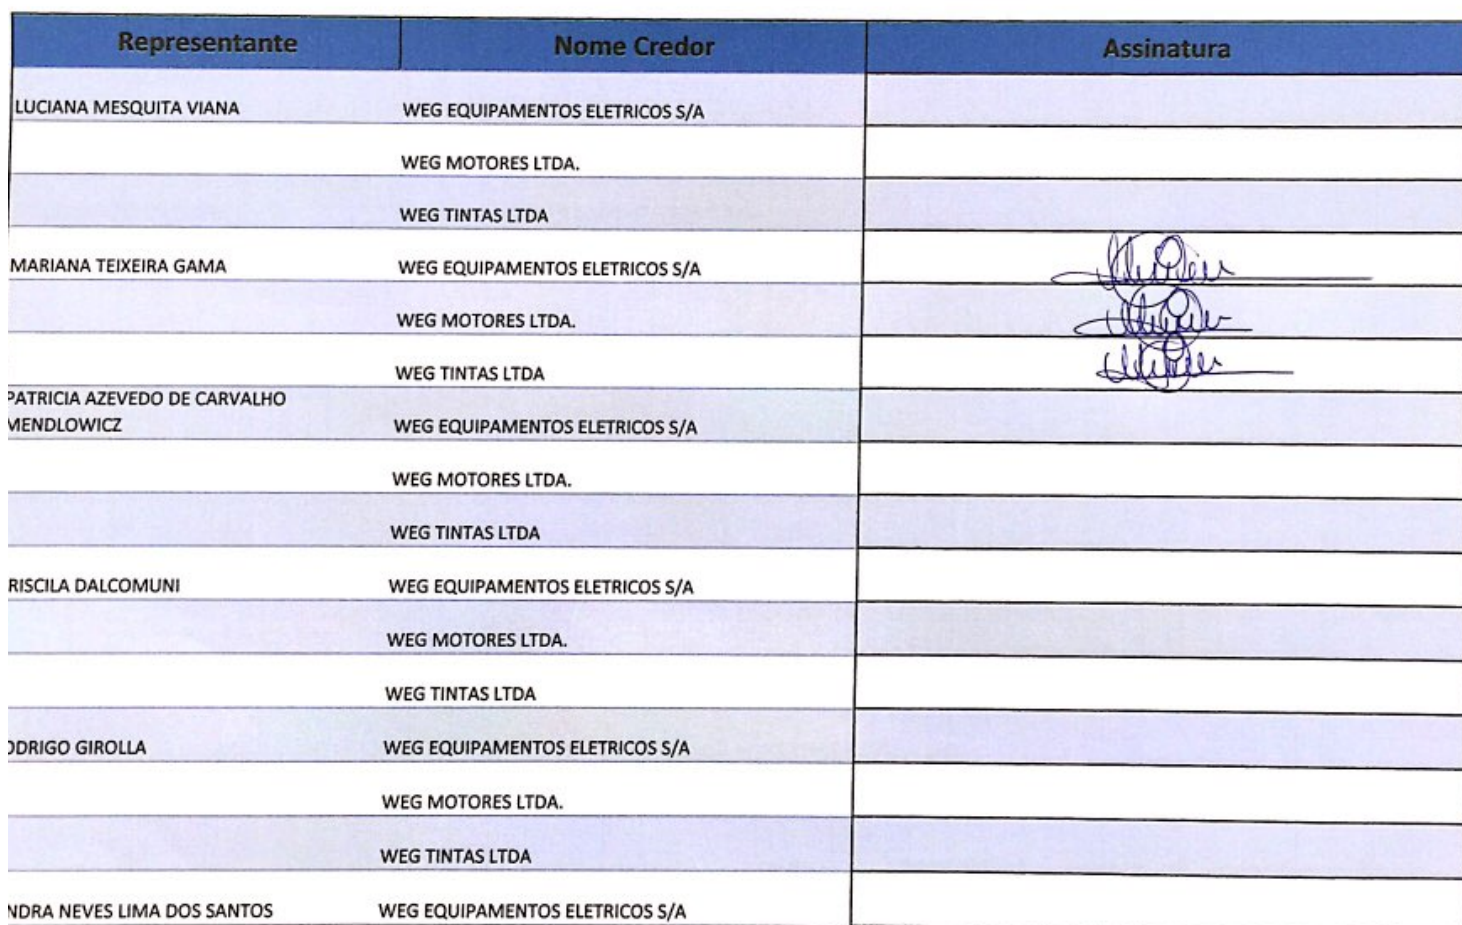 Representante Nome Credor Assinatura
LUCIANA MESQUITA VIANA WEG EQUIPAMENTOS ELETRICOS S/A
WEG MOTORES LTDA.
WEG TINTAS LTDA
MARIANA TEIXEIRA GAMA WEG EQUIPAMENTOS ELETRICOS S/A
WEG MOTORES LTDA.
WEG TINTAS LTDA
PATRICIA AZEVEDO DE CARVALHO
MENDLOWICZ WEG EQUIPAMENTOS ELETRICOS S/A
WEG MOTORES LTDA.
WEG TINTAS LTDA
RISCILA DALCOMUNI WEG EQUIPAMENTOS ELETRICOS S/A
WEG MOTORES LTDA.
WEG TINTAS LTDA
ODRIGO GIROLLA WEG EQUIPAMENTOS ELETRICOS S/A
WEG MOTORES LTDA.
WEG TINTAS LTDA
NDRA NEVES LIMA DOS SANTOS WEG EQUIPAMENTOS ELETRICOS S/A